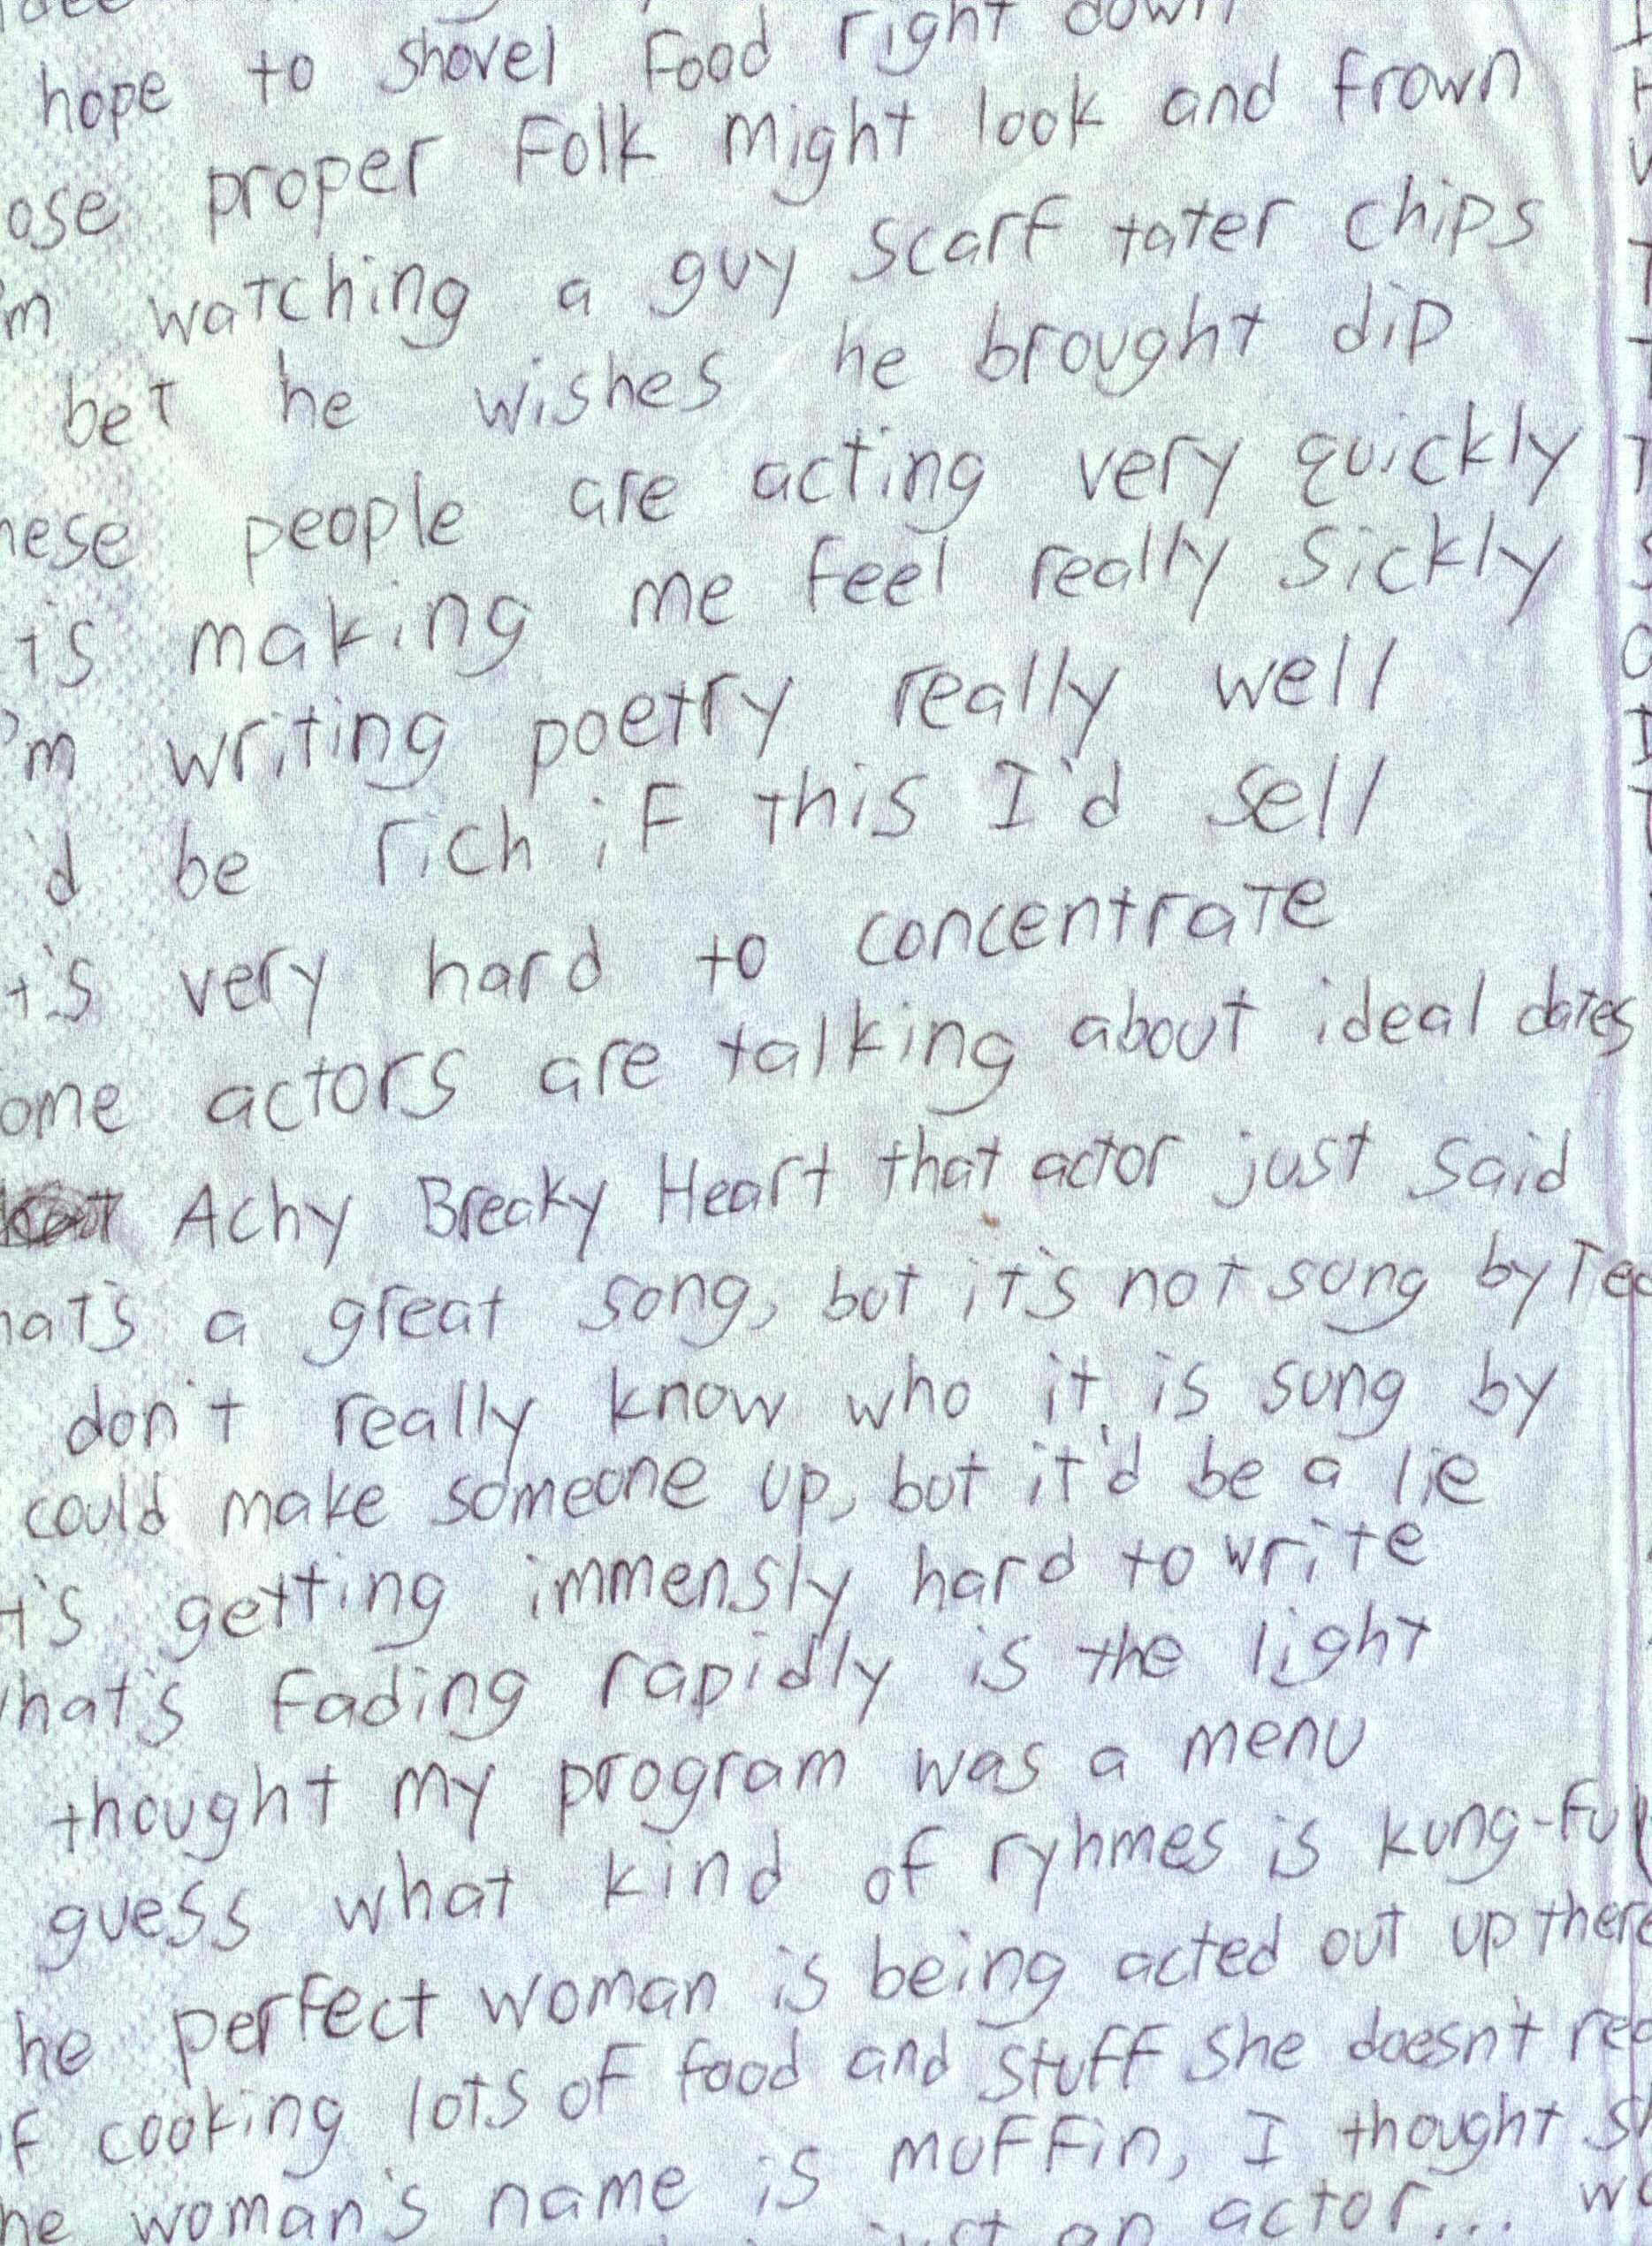 hope to shovel Food right down
ose proper Folk might look and frown
'm watching a guy scarf tater chips
bet he wishes he brought dip
hese people are acting very quickly
ts making me feel really sickly
'm writing poetry really well
'd be rich iF this I'd sell
t's very hard to concentrate
ome actors are talking about ideal dates
Achy Breaky Heart that actor just said
hat's a great song, but it's not sung by Tee
don't really know who it is sung by
could make someone up, but it'd be a lie
t's getting immensly hard to write
hat's fading rapidly is the light
thought my program was a menu
guess what kind of ryhmes is kung-fu
he perfect woman is being acted out up there
f cooking lots of food and stuff she doesn't rea
he woman's name is muffin, I thought sh
just an actor... wo